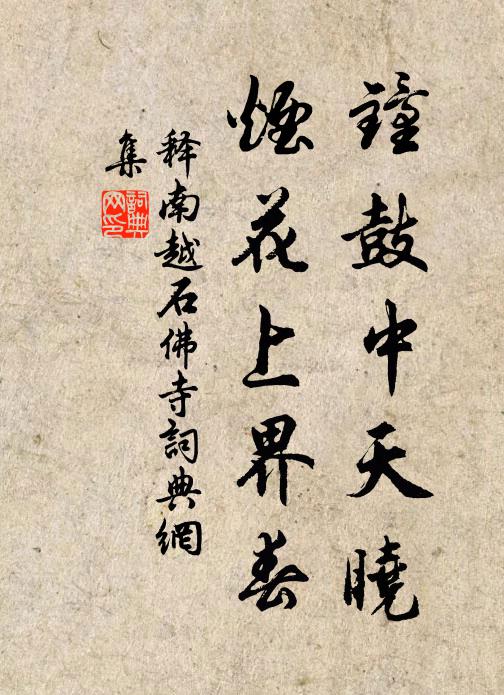 鐘鼓中天曉
煙花上界春
释南越石佛寺詞典網
集
詞典
网印